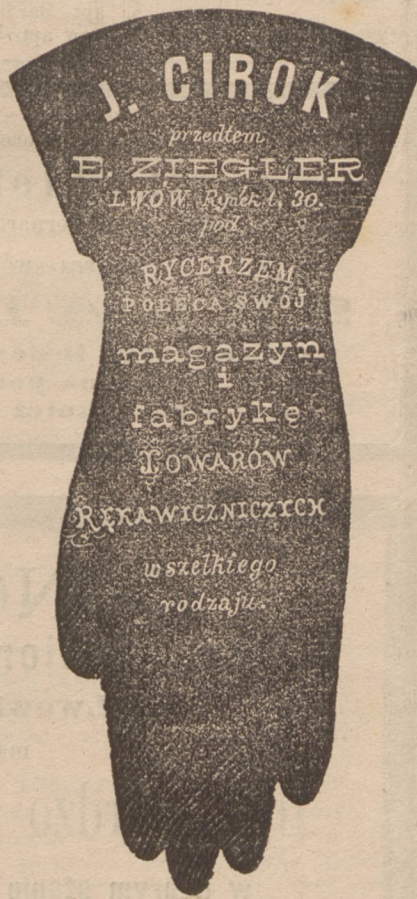 J. CIROK
przedtem
E. ZIEGLER
LWÓW Rynek l. 30.
pod
RYCERZEM
POLECA SWÓJ
magazyn
i
fabrykę
TOWARÓW
RĘKAWICZNICZYCH
wszelkiego
rodzaju.